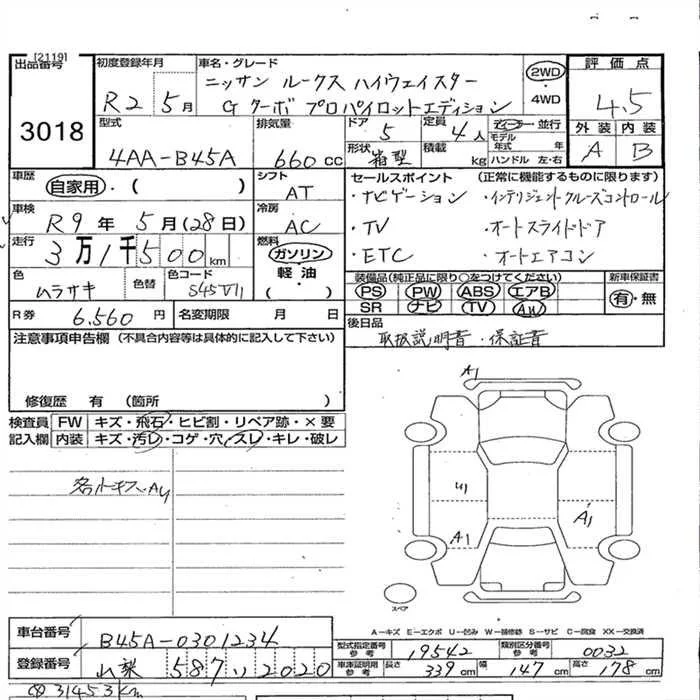 [2119]
出品番号
3018
初度登録年月
R2 5月
車名・グレード
ニッサン ルークス ハイウェイスター
Gターボ プロパイロットエディション
2WD
・
4WD
評価点
4.5
外装 内装
A B
型式
4AA-B45A
排気量
660cc
ドア
5
定員
4人
形状
箱型
積載
kg
ディーラー・並行
モデル
年式 年
ハンドル 左・右
車歴
自家用・( )
シフト
AT
車検
R9年 5月(28日)
冷房
AC
走行
3万1千500km
燃料
ガソリン
軽油
( ・ )
色
ムラサキ
色替
色コード
セールスポイント (正常に機能するものに限ります)
・ナビゲーション ・インテリジェントクルーズコントロール
・TV ・オートスライドドア
・ETC ・オートエアコン
装備品(純正品に限り○をつけてください)
PS PW ABS エアB
SR ナビ TV AW
新車保証書
有・無
R券
6,560円
名変期限 月 日
後日品
取扱説明書・保証書
注意事項申告欄(不具合内容等は具体的に記入して下さい)
修復歴 有 (箇所 )
検査員
記入欄
FW キズ・飛石・ヒビ割・リペア跡・×要
内装 キズ・汚レ・コゲ・穴・スレ・キレ・破レ
A1
U1
A1
A1
スペア
A-キズ E-エクボ U-凹み W-補修跡 S-サビ C-腐食 XX-交換済
車台番号
B45A-0301234
登録番号
山梨 587 い 2020
型式指定番号
参考
19542
類別区分番号
参考
0032
車庫証明用
参考
長さ 339cm 幅 147cm 高さ 178cm
31453km